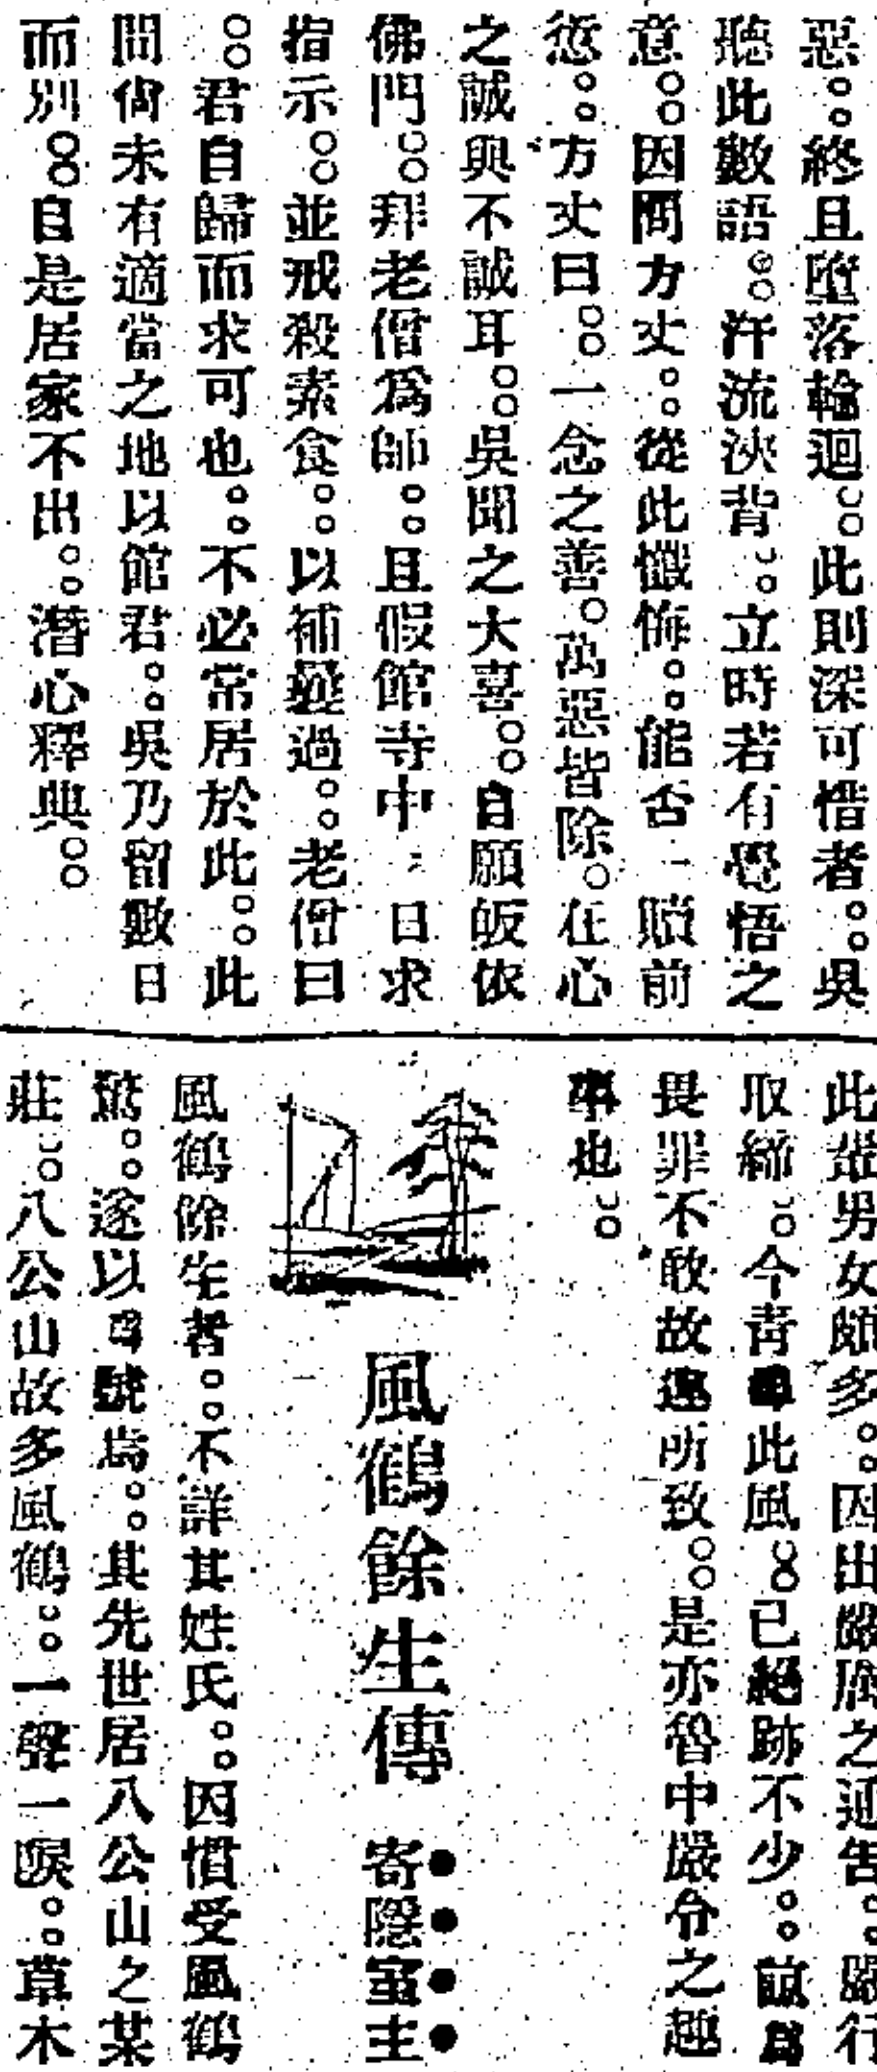 惡。。終且墮落輪迴。。此則深可惜者。。吳
聽此數語。。汗流浹背。。立時若有覺悟之
意。。因問方丈。。從此懺悔。。能否一贖前
愆。。方丈曰。。一念之善。萬惡皆除。在心
之誠與不誠耳。。吳聞之大喜。。自願皈依
佛門。。拜老僧為師。。且假館寺中。日求
指示。。並戒殺素食。。以補愆過。。老僧曰
。。君自歸而求可也。。不必常居於此。。此
間尙未有適當之地以館君。。吳乃留數日
而別。。自是居家不出。。潛心釋典。。
此輩男女頗多。。因出嚴厲之通吿。。嚴行
取締。。今靑此風。。已絕跡不少。。諒爲
畏罪不敢故違所致。。是亦督中嚴令之趣
事也。。
風鶴餘生傳
寄隱室主
風鶴餘生者。。不詳其姓氏。。因慣受風鶴
驚。。遂以自號焉。。其先世居八公山之某
莊。。八公山故多風鶴。。一聲一唳。。草木